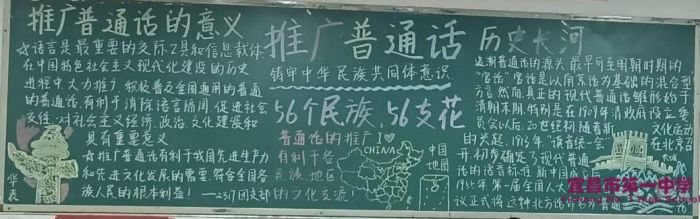 推广普通话的意义
☆语言是最重要的交际工具和信息载体
在中国特色社会主义现代化建设的历史
进程中,大力推广、积极普及全国通用的普通
的普通话,有利于消除语言隔阂,促进社会
交往,对社会主义经济、政治、文化建设和
具有重要意义
☆推广普通话有利于我国先进生产力
和先进文化发展的需要,符合全国各
族人民的根本利益!——2317团支部
华表
推广普通话
铸牢中华民族共同体意识
56个民族,56支花
普通话的推广
有利于各
民族地区
的文化交流
CHINA
中国
地图
历史长河
追溯普通话的源头,最早可至明朝时期的
"官话",官话是以南京话为基础的混合型
方言。然而,真正的现代普通话雏形始于
清朝末期,特别是在1909年清政府设立
委员会以后。20世纪初,随着新
文化运动
的兴起,1913年,"读音统一会"
在北京召
开,初步确定了现代普通
话的语音标准
1955年,第一届全国人大
议正式将这种北方话命名为普通
宜昌市第一中学